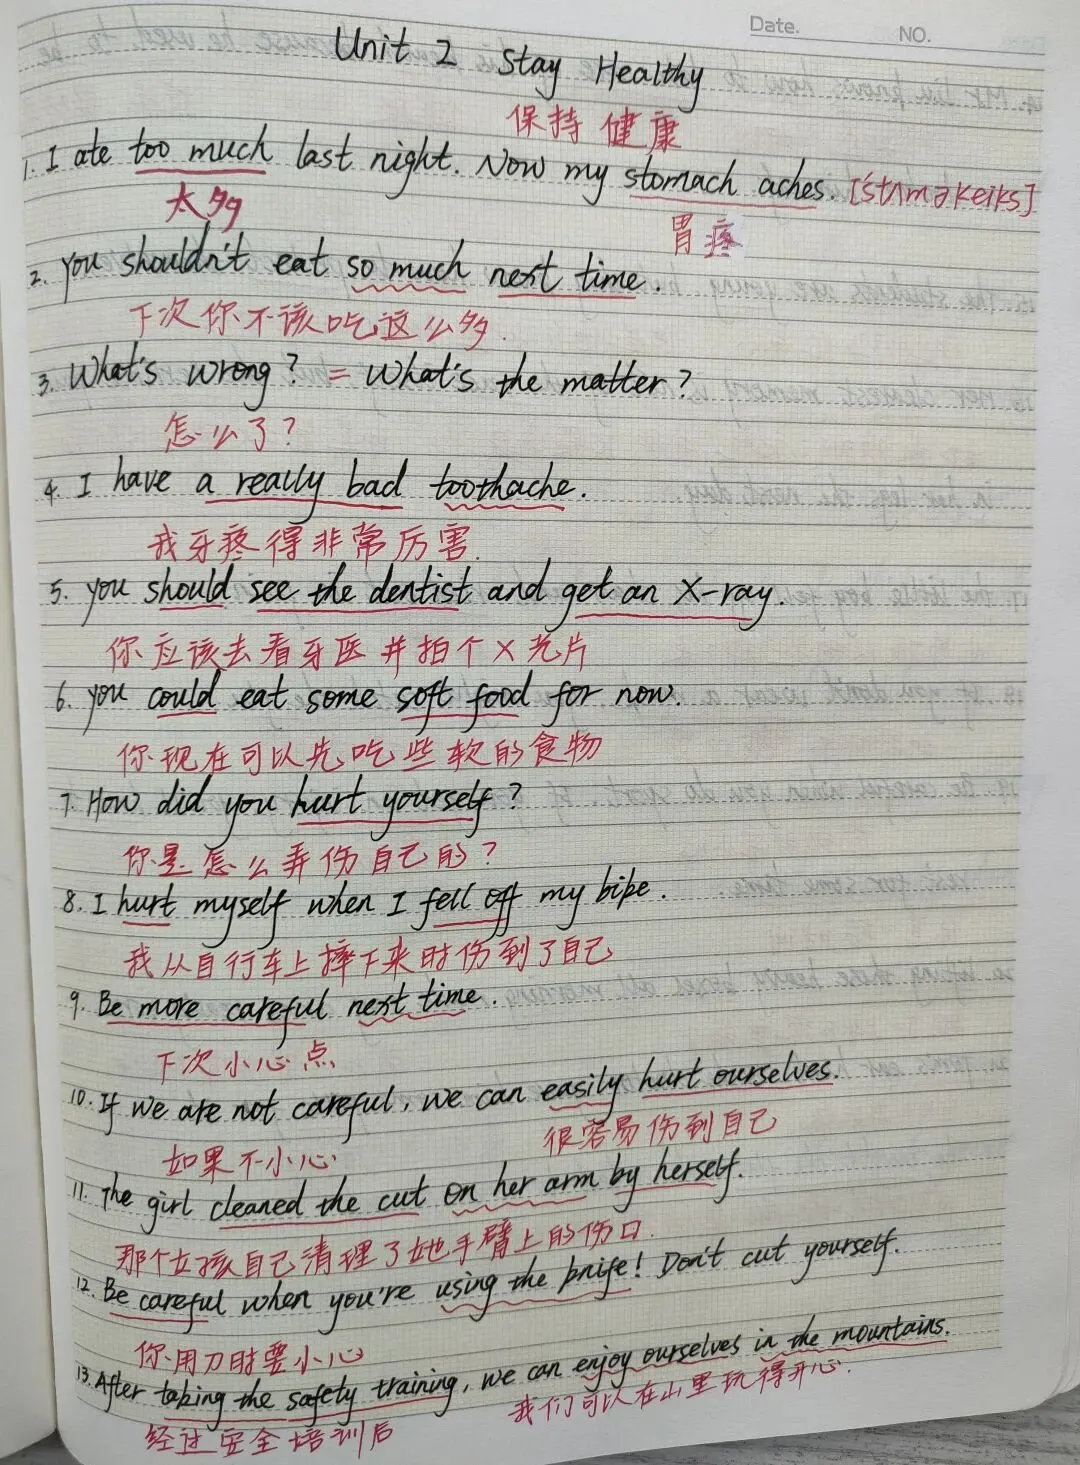 Date.
NO.
Unit 2 Stay Healthy
保持健康
1. I ate too much last night. Now my stomach aches. [ˈstʌməkeiks]
太多
胃疼
2. You shouldn't eat so much next time.
下次你不该吃这么多.
3. What's wrong? = What's the matter?
怎么了?
4. I have a really bad toothache.
我牙疼得非常厉害.
5. You should see the dentist and get an X-ray.
你应该去看牙医并拍个X光片
6. You could eat some soft food for now.
你现在可以先吃些软的食物
7. How did you hurt yourself?
你是怎么弄伤自己的?
8. I hurt myself when I fell off my bike.
我从自行车上摔下来时伤到了自己
9. Be more careful next time.
下次小心点
10. If we are not careful, we can easily hurt ourselves.
如果不小心
很容易伤到自己
11. The girl cleaned the cut on her arm by herself.
那个女孩自己清理了她手臂上的伤口.
12. Be careful when you're using the knife! Don't cut yourself.
你用刀时要小心
13. After taking the safety training, we can enjoy ourselves in the mountains.
经过安全培训后
我们可以在山里玩得开心.